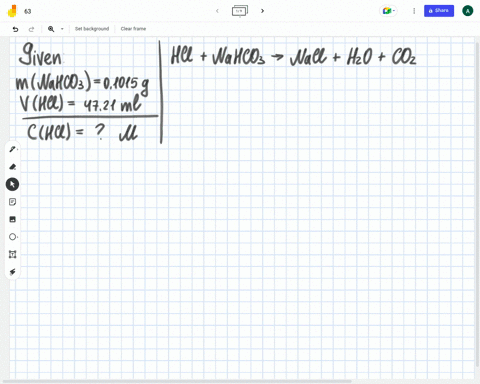 63
1/1
Share
A
Set background
Clear frame
Given
m(NaHCO₃) = 0.1015 g
V(HCl) = 47.21 ml
C(HCl) = ? M
HCl + NaHCO₃ → NaCl + H₂O + CO₂